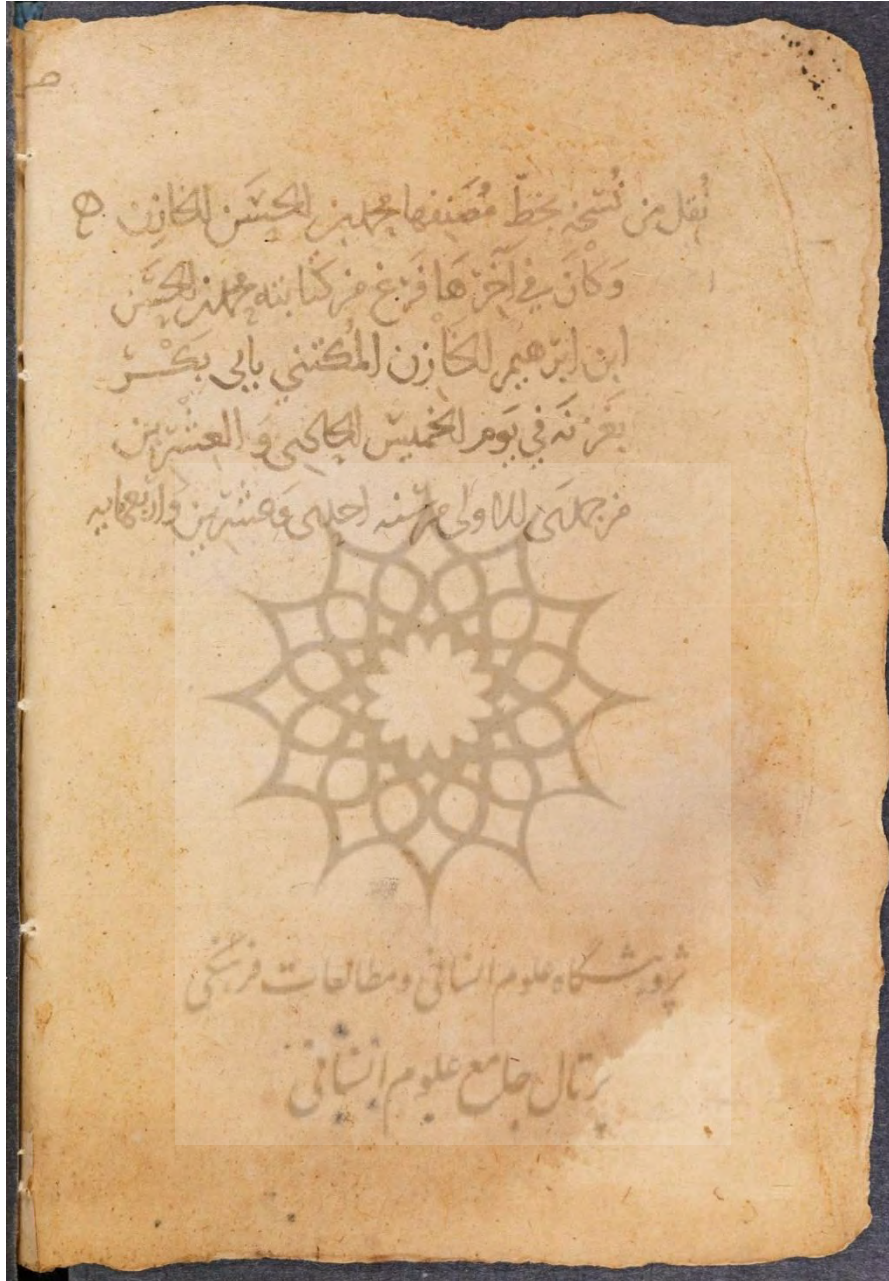 نُقل من نُسْخة بخطّ مُصَنفها محمد بن الحسَن الخازن ه
وَكانَ في آخرهَا فَرَغ من كتابته محمد بن الحسَن
ابن ابرهيم الخازن المُكتني بابي بَكْر
بغَزنَه في يَوم الخميس الحادى وَ العِشْرين
من جمادى الاولى من سنه احدى وَعشرين واربعمايه
پژوهشگاه علوم انسانی و مطالعات فرهنگی
پرتال جامع علوم انسانی